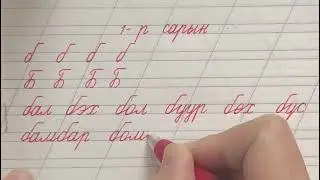 1-р сарын
б б б б
Б Б Б Б
бал бэх бол буур бөх бус
бамбар бом